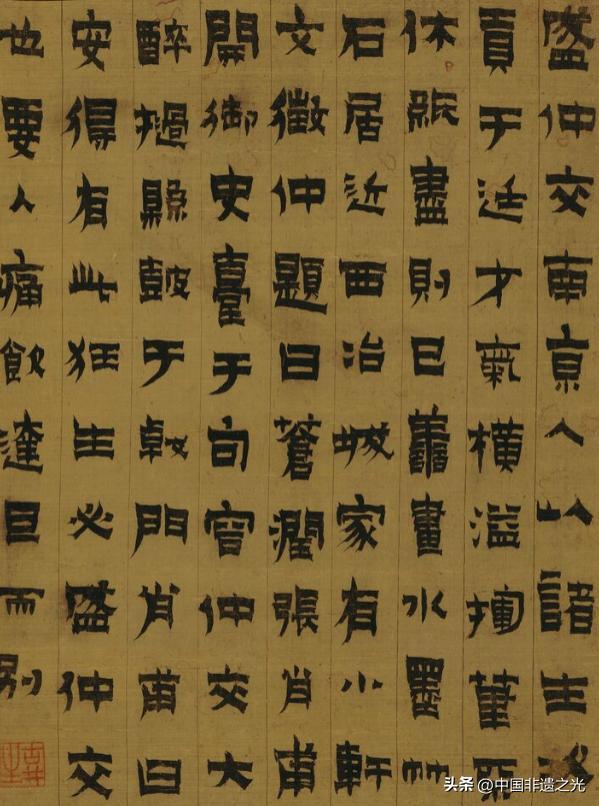 盛仲交南京人以諸生
貢于廷才氣橫溢揮筆
休紙盡則已善畫水墨竹
石居近西冶城家有小軒
文徵仲題曰蒼潤張肖甫
開御史臺于句容仲交大
醉撾縣鼓于轅門肖甫曰
安得有此狂生必盛仲交
也要入痛飲達旦而別
头条 @中国非遗之光